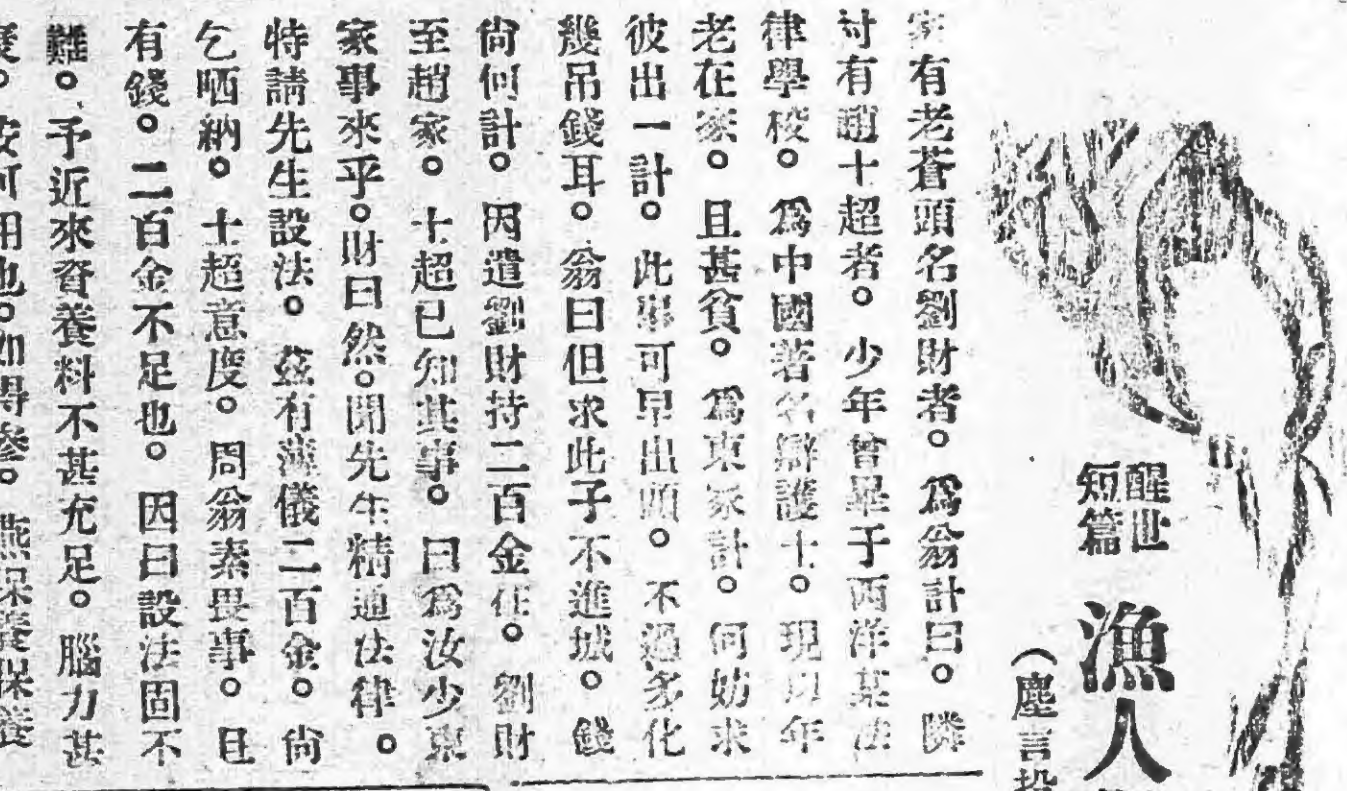 醒世
短篇
漁人
(塵言投
家有老蒼頭名劉財者。爲翁計曰。隣
村有趙士超者。少年曾畢于西洋某法
律學校。爲中國著名辯護士。現因年
老在家。且甚貧。爲東家計。何妨求
彼出一計。此事可早出頭。不過多化
幾吊錢耳。翁曰但求此子不進城。錢
尙何計。因遣劉財持二百金往。劉財
至趙家。士超已知其事。曰爲汝少東
家事來乎。財曰然。聞先生精通法律。
特請先生設法。茲有薄儀二百金。尙
乞哂納。士超意度。周翁素畏事。且
有錢。二百金不足也。因曰設法固不
難。予近來資養料不甚充足。腦力甚
安可用也。如得參。燕保養保養